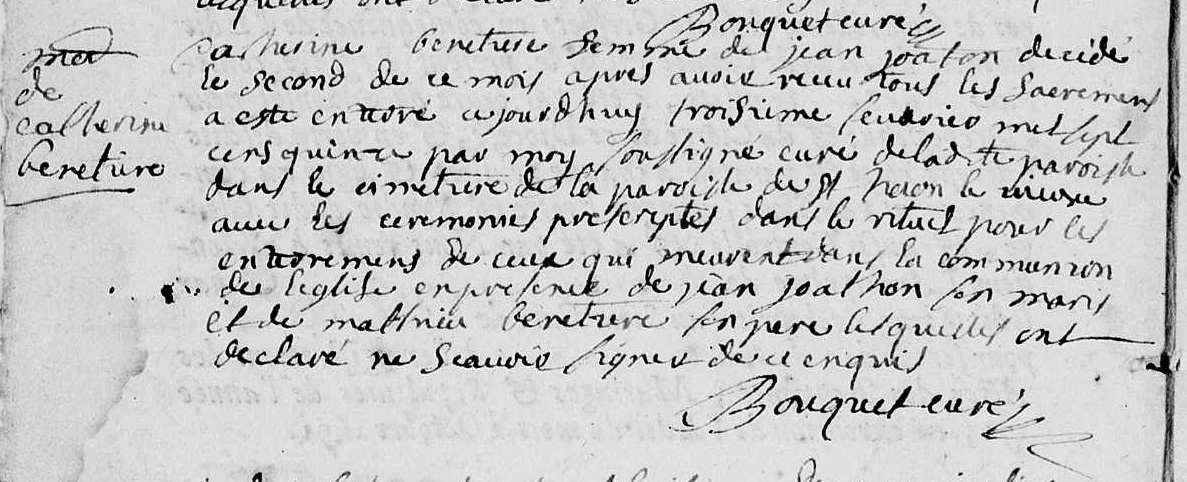 Bouquet curé
mort
de
catherine
bereture
Catherine bereture femme de jean joaton decidé
le second de ce mois apres avoir recu tous les sacremens
a esté enterré cejourdhuy troisieme feuvrier mil sept
cens quinze par moy soussigné curé de ladite paroisse
dans le cimeture de la paroisse de St haon le vieux
avec les ceremonies prescriptes dans le rituel pour les
enterremens de ceux qui meurent dans la communion
de leglise en presence de jean joathon son maris
et de mathieu bereture son pere lesquelles ont
declaré ne scavoir signer de ce enquis
Bouquet curé